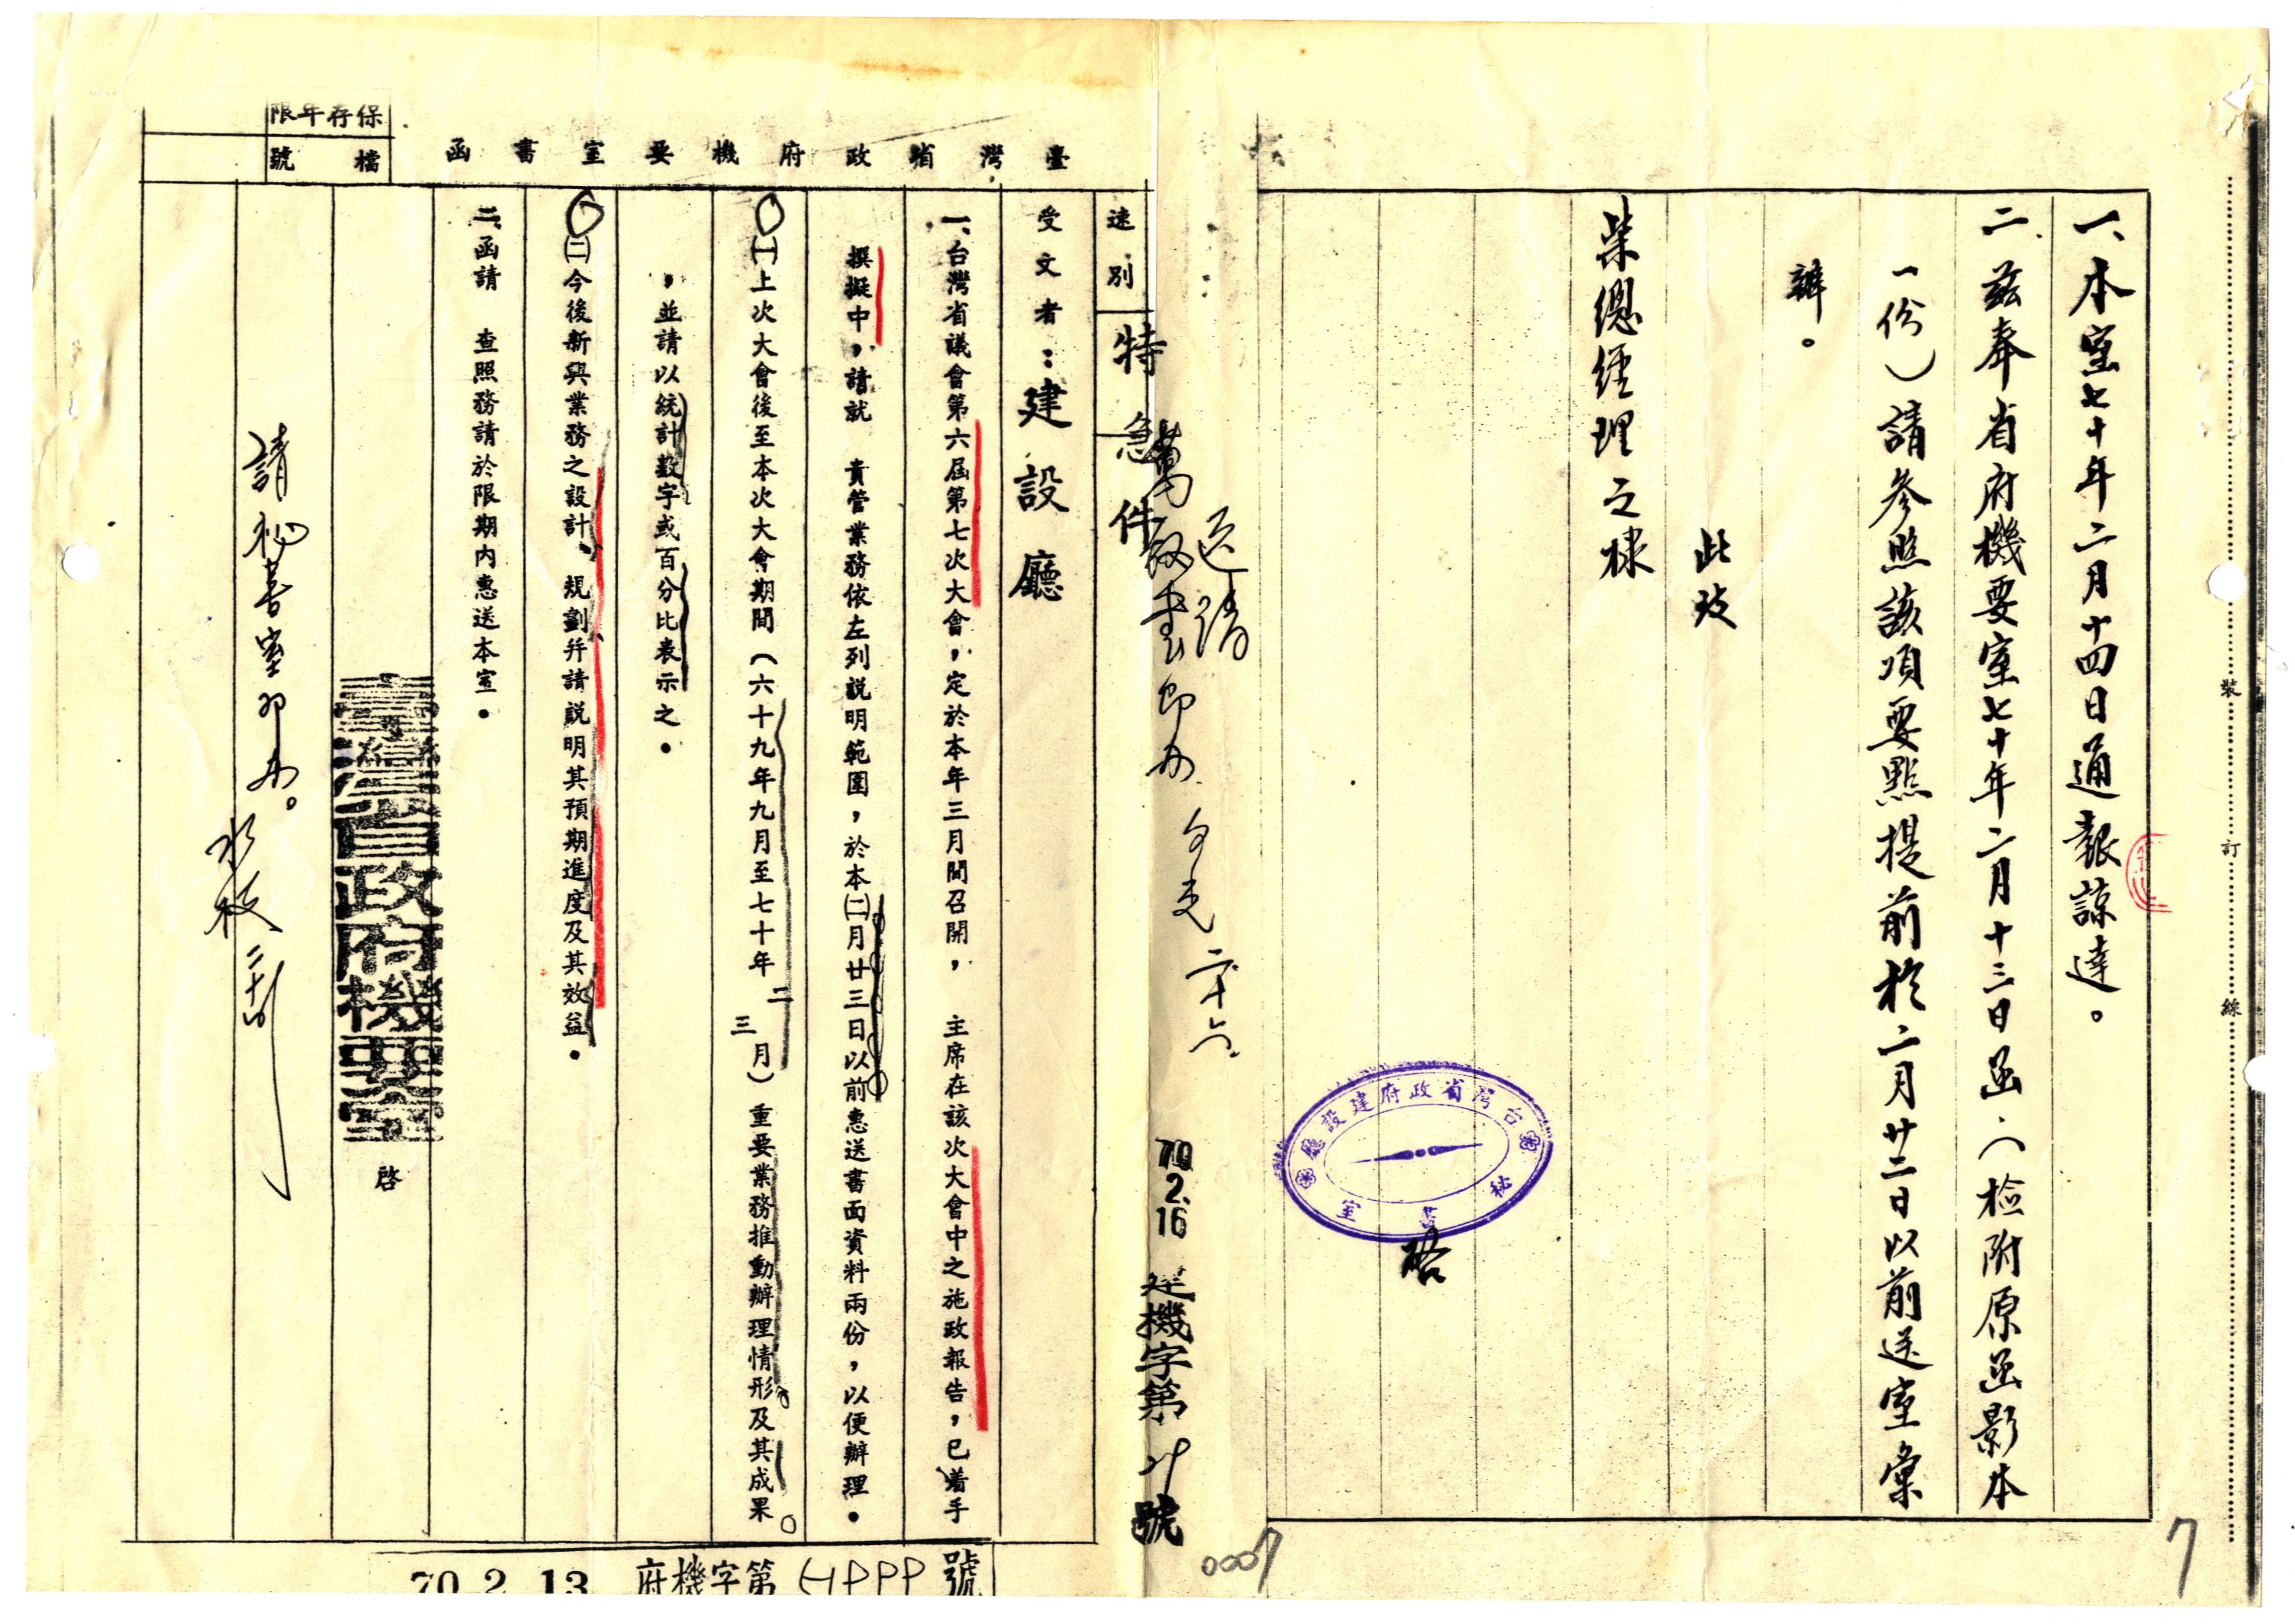 一、本室七十年二月十四日通報諒達。
二、茲奉省府機要室七十年二月十三日函(檢附原函影本
一份)請參照該項要點提前於二月廿二日以前送室彙
辦。
此致
柴總經理之棣
台灣省政府建設廳
秘書室
啓
裝
訂
線
7
送請
秘書室
70.2.16 建機字第
號
0007
速別
特急件
臺灣省政府機要室書函
保存年限
檔號
受文者：建設廳
一、台灣省議會第六屆第七次大會，定於本年三月間召開，主席在該次大會中之施政報告，已着手
撰擬中，請就 貴管業務依左列説明範圍，於本㈡月廿三日以前惠送書面資料兩份，以便辦理。
㈠上次大會後至本次大會期間(六十九年九月至七十年二三月)重要業務推動辦理情形及其成果
，並請以統計數字或百分比表示之。
㈡今後新興業務之設計、規劃并請説明其預期進度及其效益。
二、函請 查照務請於限期內惠送本室。
臺灣省政府機要室
啓
請秘書室卽办。
70.2.13 府機字第
號